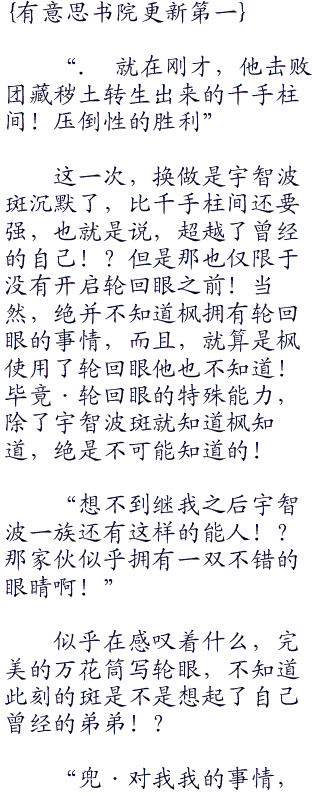 {有意思书院更新第一}
“． 就在刚才，他击败
团藏秽土转生出来的千手柱
间！压倒性的胜利”
这一次，换做是宇智波
斑沉默了，比千手柱间还要
强，也就是说，超越了曾经
的自己！？但是那也仅限于
没有开启轮回眼之前！当
然，绝并不知道枫拥有轮回
眼的事情，而且，就算是枫
使用了轮回眼他也不知道！
毕竟·轮回眼的特殊能力，
除了宇智波斑就知道枫知
道，绝是不可能知道的！
“想不到继我之后宇智
波一族还有这样的能人！？
那家伙似乎拥有一双不错的
眼睛啊！”
似乎在感叹着什么，完
美的万花筒写轮眼，不知道
此刻的斑是不是想起了自己
曾经的弟弟！？
“兜·对我我的事情，